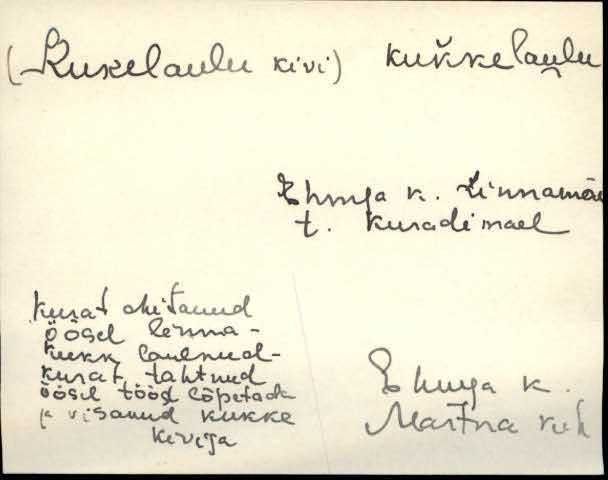 (Kukelaulu kivi) kukkelaulu
Ehmja k. Linnamäe
t. Kuradimäel
kurat ehitanud
öösel linna -
kukk laulnud -
kurat tahtnud
öösel tööd lõpetada
ja visanud kukke
kiviga
Ehmja k.
Martna